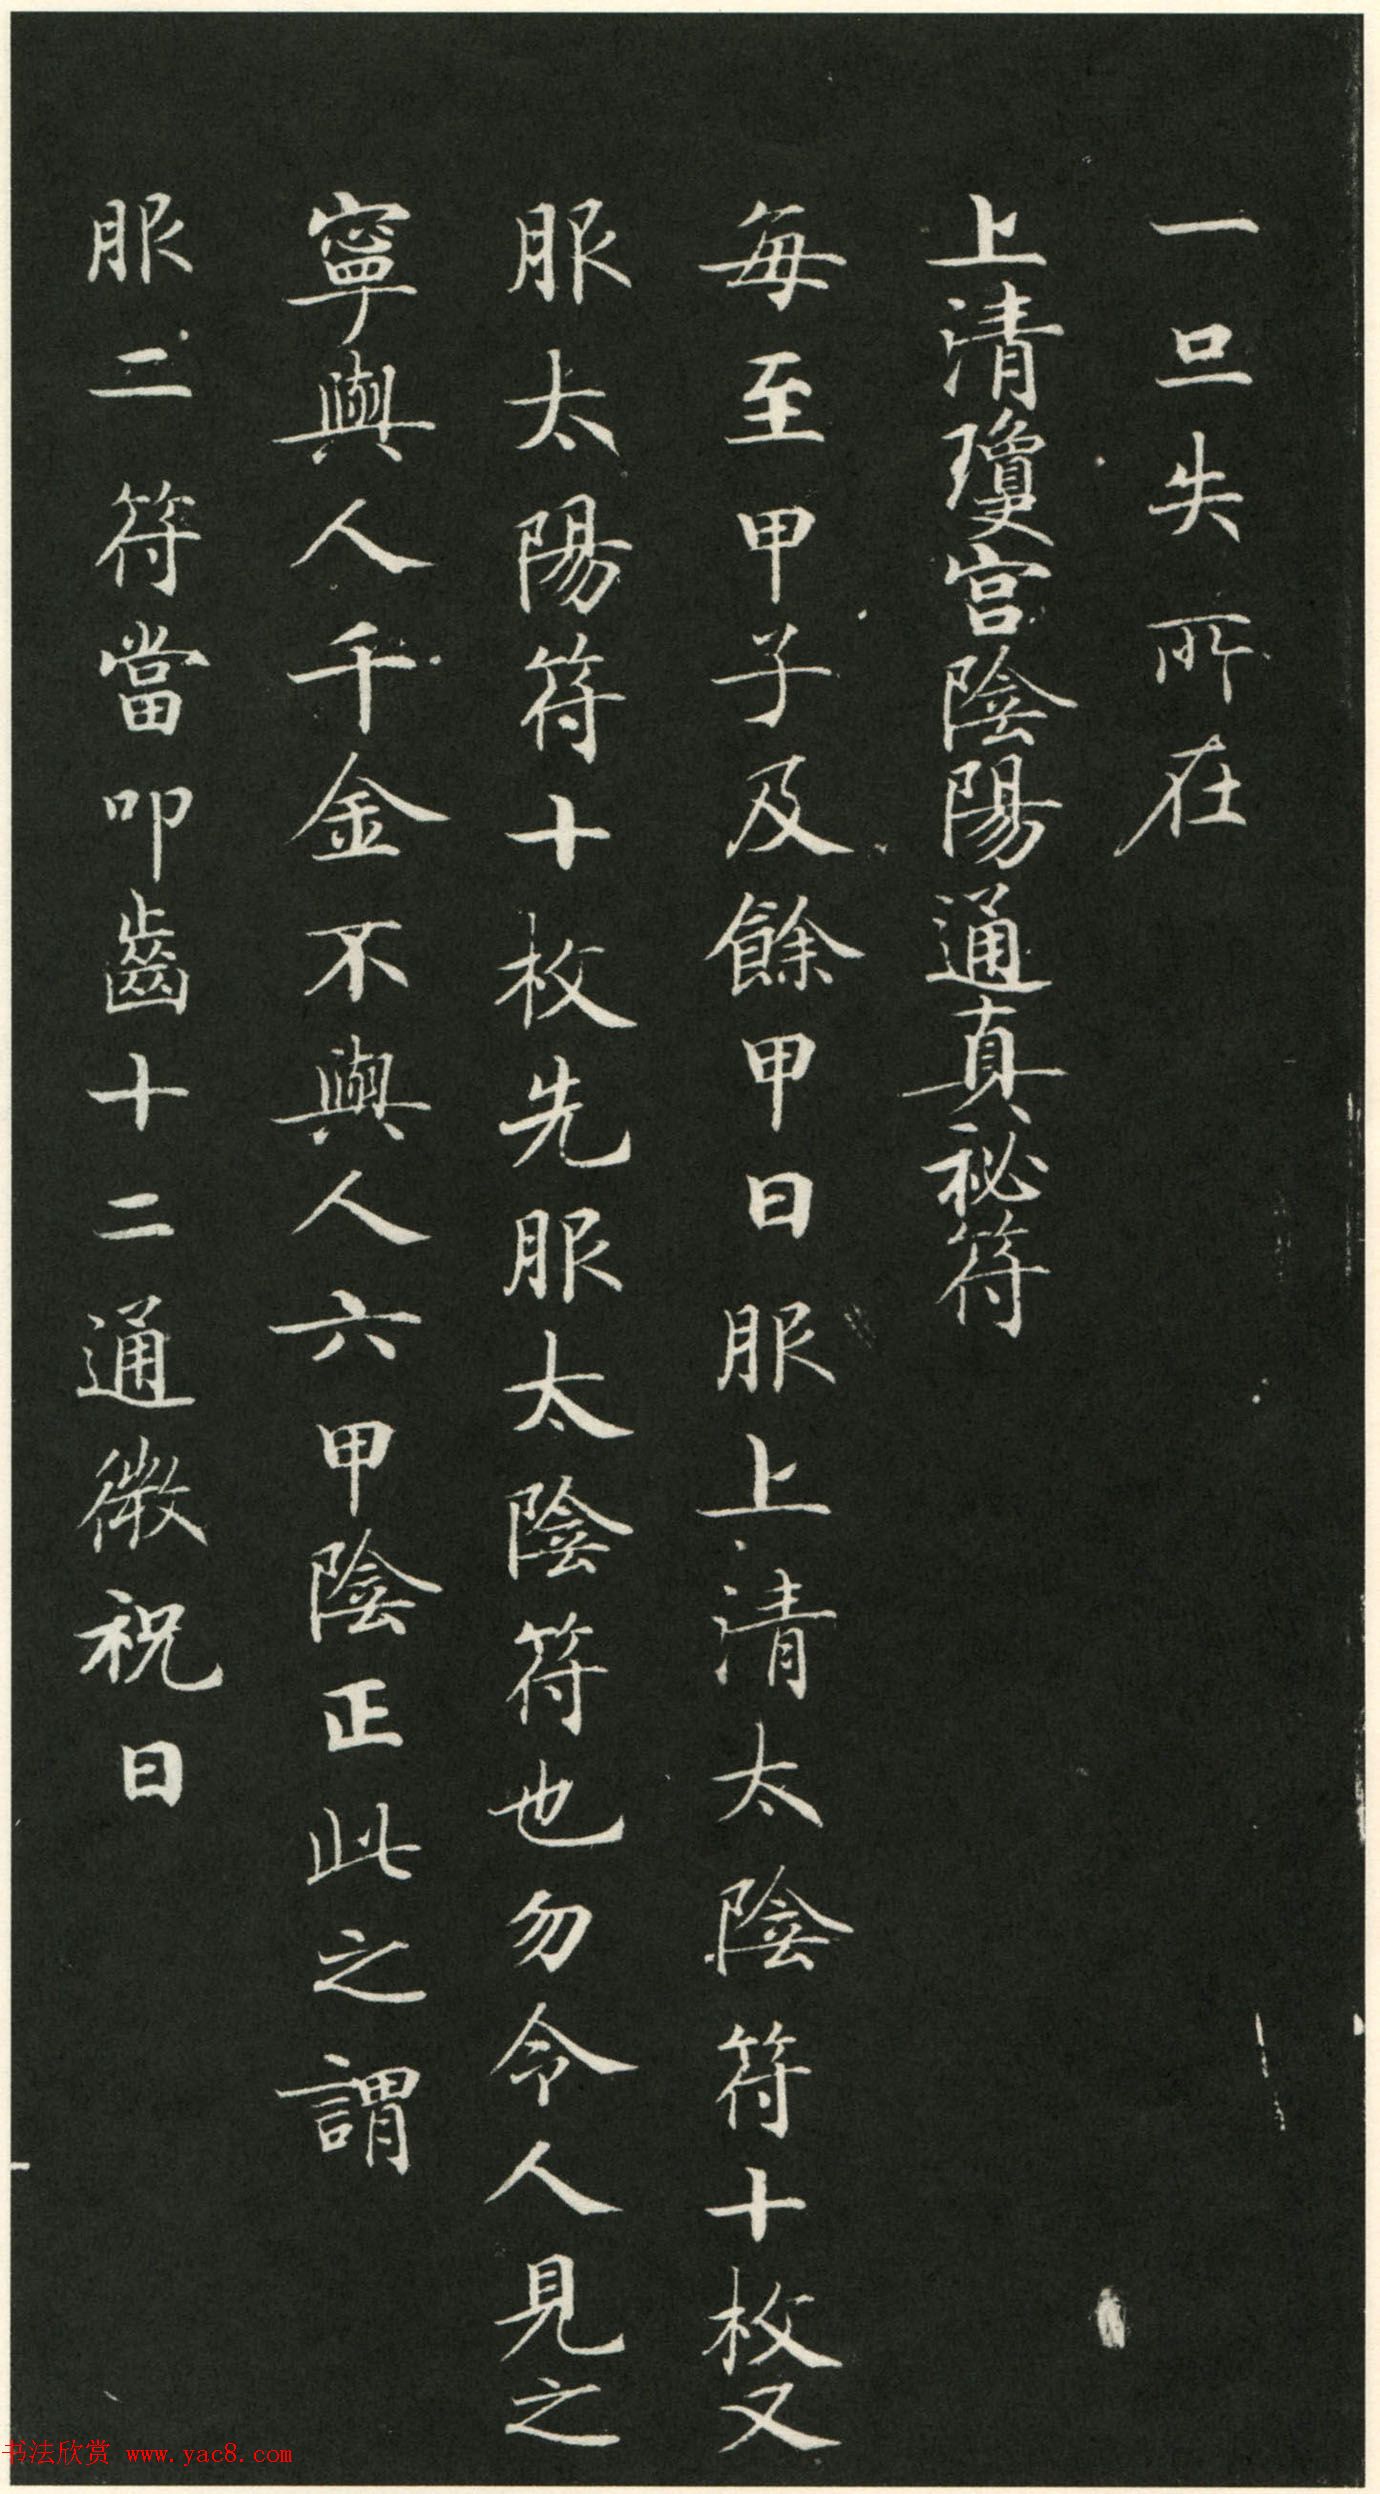 一旦失所在
上清瓊宮陰陽通真秘符
每至甲子及餘甲日服上清太陰符十枚又
服太陽符十枚先服太陰符也勿令人見之
寧與人千金不與人六甲陰正此之謂
服二符當叩齒十二通微祝曰
书法欣赏 www.yac8.com